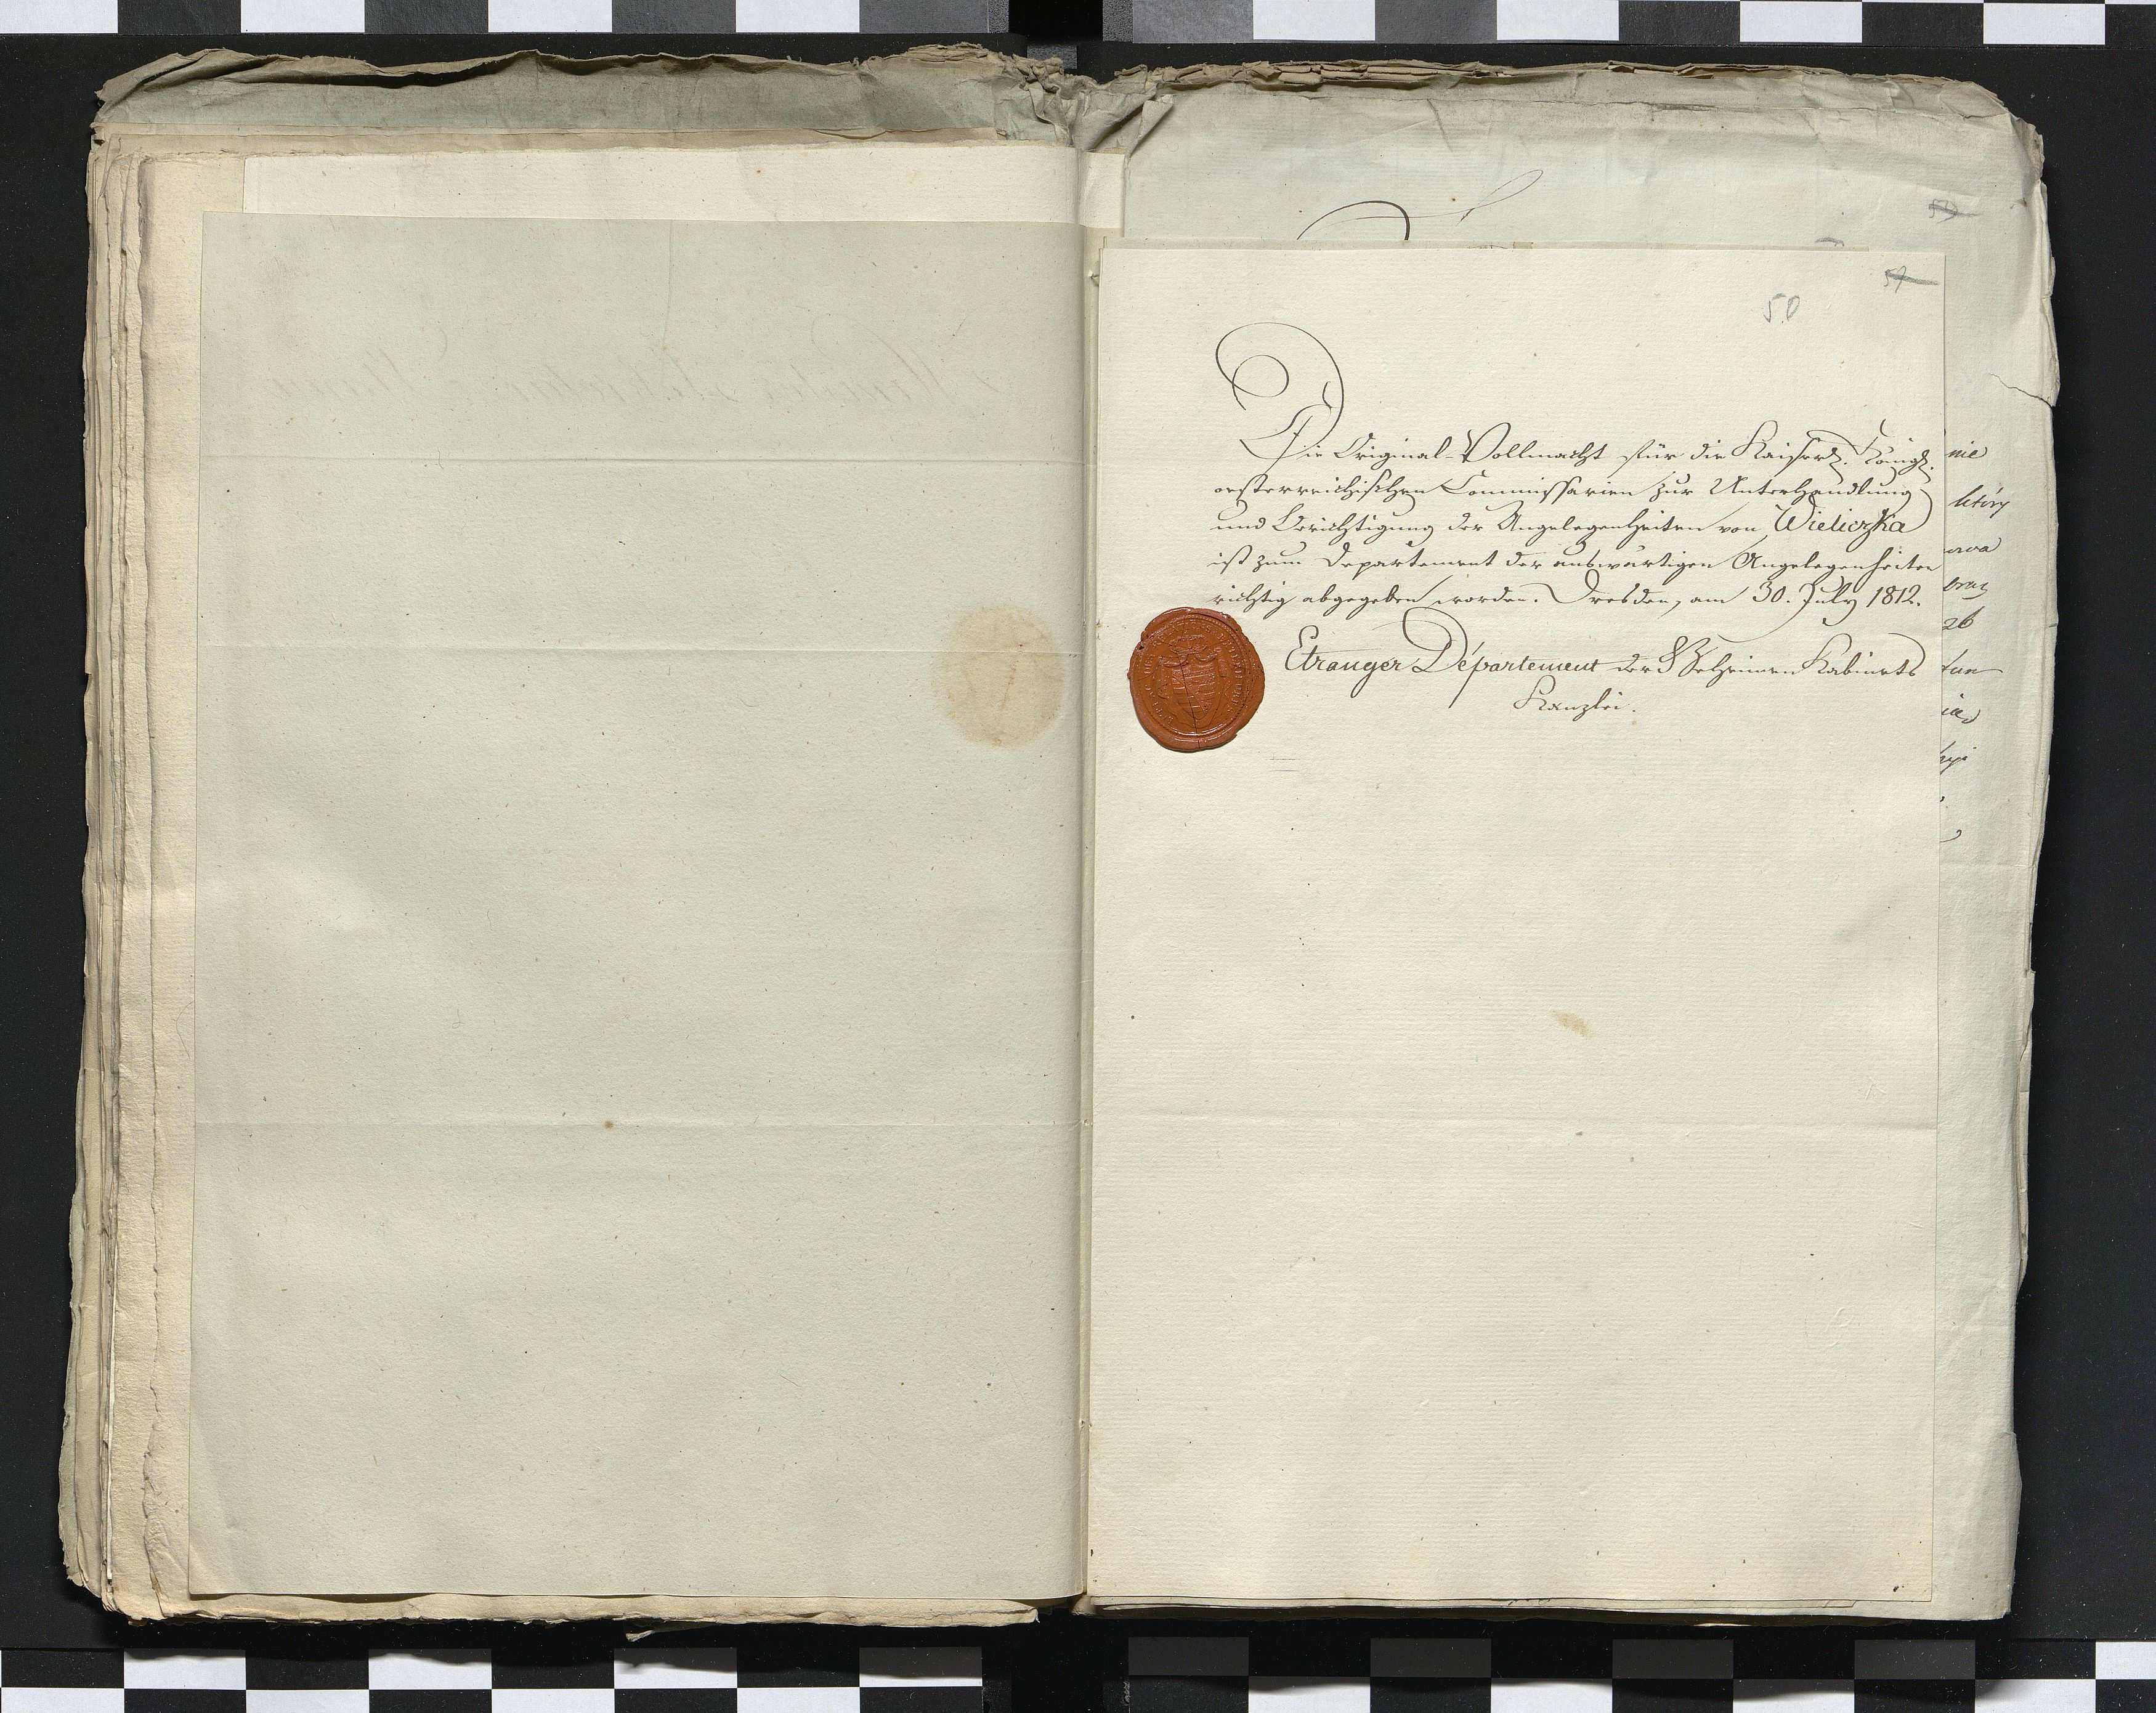 57
50
Die Original-Vollmacht für die Kaiserl. Königl.
oesterreichischen Commissarien zur Unterhandlung
und Berichtigung der Angelegenheiten von Wieliczka
ist zum Departement der auswärtigen Angelegenheiten
richtig abgegeben worden. Dresden, am 30. July 1812.
Etranger Département der Geheimen Kabinets
Kanzlei.
nie
który